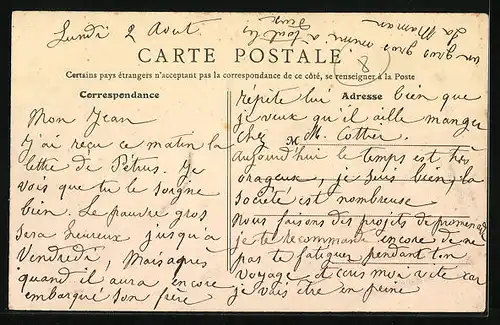 Lundi 2 Aout
un gros gros mimi à tout les
deux
La Maman
8
CARTE POSTALE
Certains pays étrangers n'acceptant pas la correspondance de ce côté, se renseigner à la Poste
Correspondance
Adresse
Mon Jean
J'ai reçu ce matin la
lettre de Pétrus. Je
vois que tu le soigne
bien. Le pauvre gros
sera heureux jusqu'à
Vendredi, Mais apres
quand il aura encore
embarqué son frère
répite lui bien que
je veux qu'il aille manger
chez M. Cottier.
M
Aujourd'hui le temps est très
orageux, je suis bien, la
société est nombreuse
nous faisons des projets de promenade
je te recommande encore de ne
pas te fatiguer pendant ton
voyage et écris moi vite car
je vais être en peine